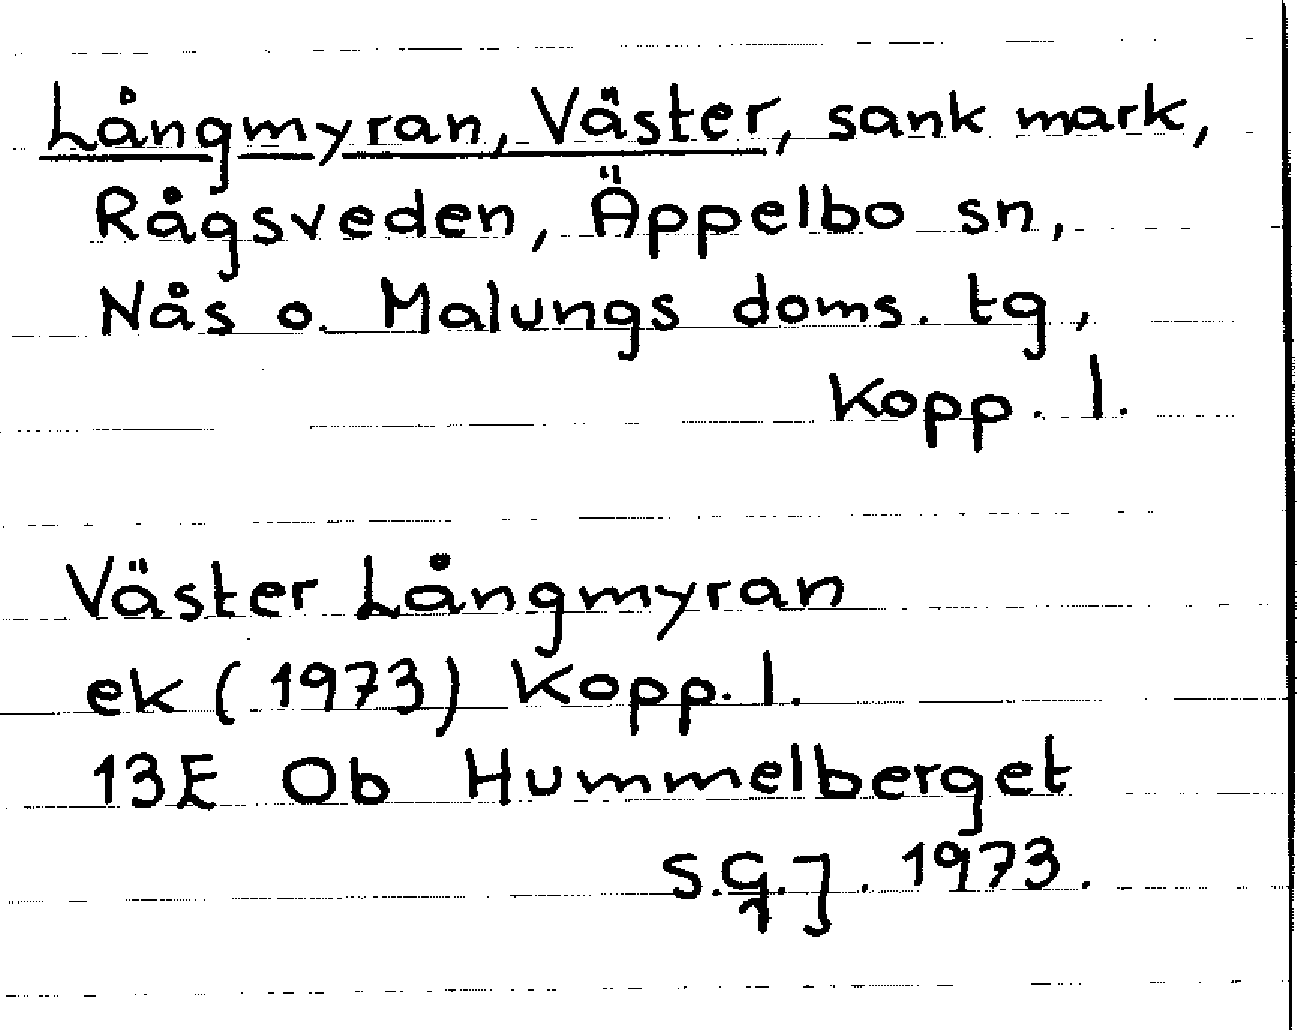 Långmyran, Väster, sank mark,
Rågsveden, Äppelbo sn,
Nås o. Malungs doms. tg,
Kopp. l.
Väster Långmyran
ek (1973) Kopp. l.
13E Ob Hummelberget
S.G.J. 1973.